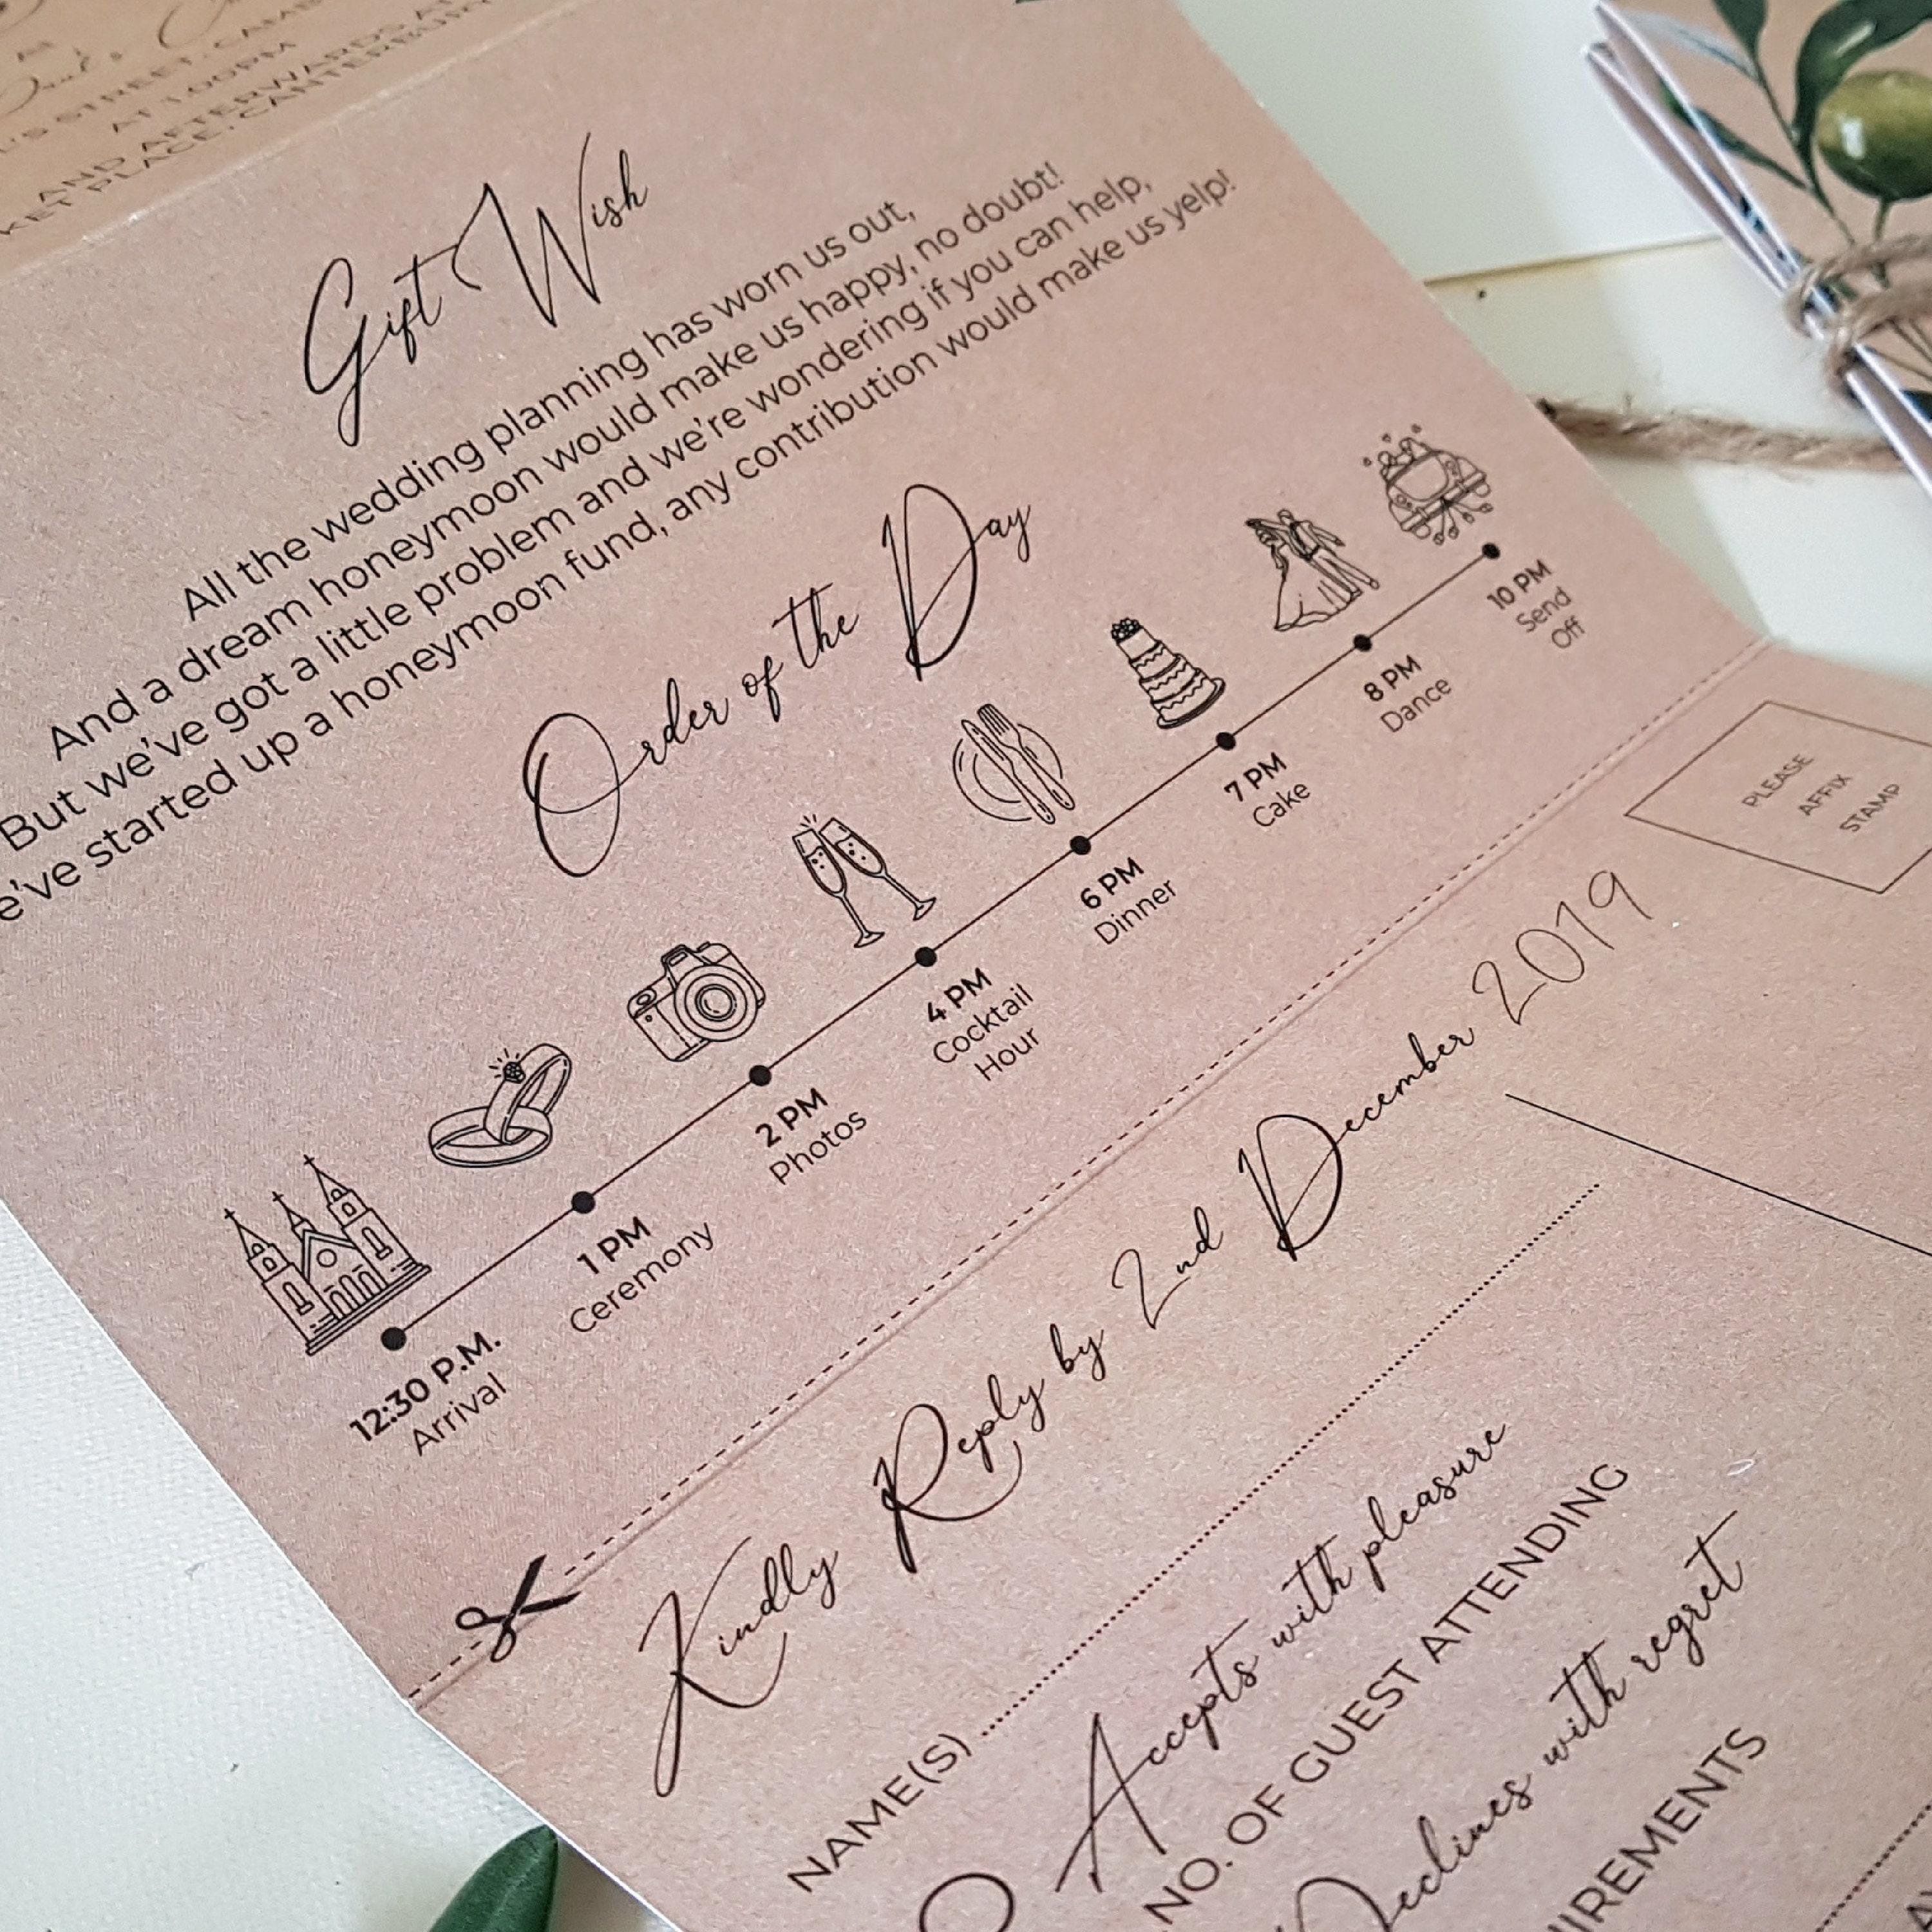 AT
STREET, CAMB
AT 1.00PM
AND AFTERWARDS AT
KET PLACE, CANTERBURY
Gift Wish
All the wedding planning has worn us out,
And a dream honeymoon would make us happy, no doubt!
But we've got a little problem and we're wondering if you can help,
e've started up a honeymoon fund, any contribution would make us yelp!
Order of the Day
12:30 P.M.
Arrival
1 PM
Ceremony
2 PM
Photos
4 PM
Cocktail
Hour
6 PM
Dinner
7 PM
Cake
8 PM
Dance
10 PM
Send
Off
PLEASE
AFFIX
STAMP
Kindly Reply by 2nd December 2019
NAME(S)
Accepts with pleasure
NO. OF GUEST ATTENDING
Declines with regret
UIREMENTS